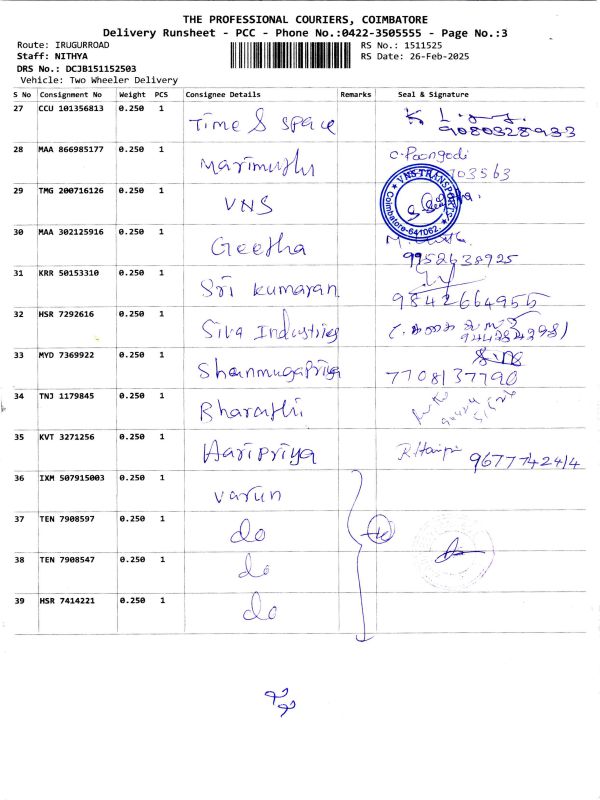 THE PROFESSIONAL COURIERS, COIMBATORE
Delivery Runsheet - PCC - Phone No.:0422-3505555 - Page No.:3
Route: IRUGURROAD RS No.: 1511525
Staff: NITHYA RS Date: 26-Feb-2025
DRS No.: DCJB151152503
Vehicle: Two Wheeler Delivery
S No Consignment No Weight PCS Consignee Details Remarks Seal & Signature
27 CCU 101356813 0.250 1 Time & space
9080328933
28 MAA 866985177 0.250 1 Marimuthu C. Poongodi
03563
29 TMG 200716126 0.250 1 VNS
VNS TRANSPORT
Coimbatore-641062.
30 MAA 302125916 0.250 1 Geetha
9952638925
31 KRR 50153310 0.250 1 Sri kumaran
9842664955
32 HSR 7292616 0.250 1 Siva Industries
33 MYD 7369922 0.250 1 Shanmugapriya
7708137790
34 TNJ 1179845 0.250 1 Bharathi
35 KVT 3271256 0.250 1 Haripriya
9677742414
36 IXM 507915003 0.250 1 varun
37 TEN 7908597 0.250 1 do
38 TEN 7908547 0.250 1 do
39 HSR 7414221 0.250 1 do